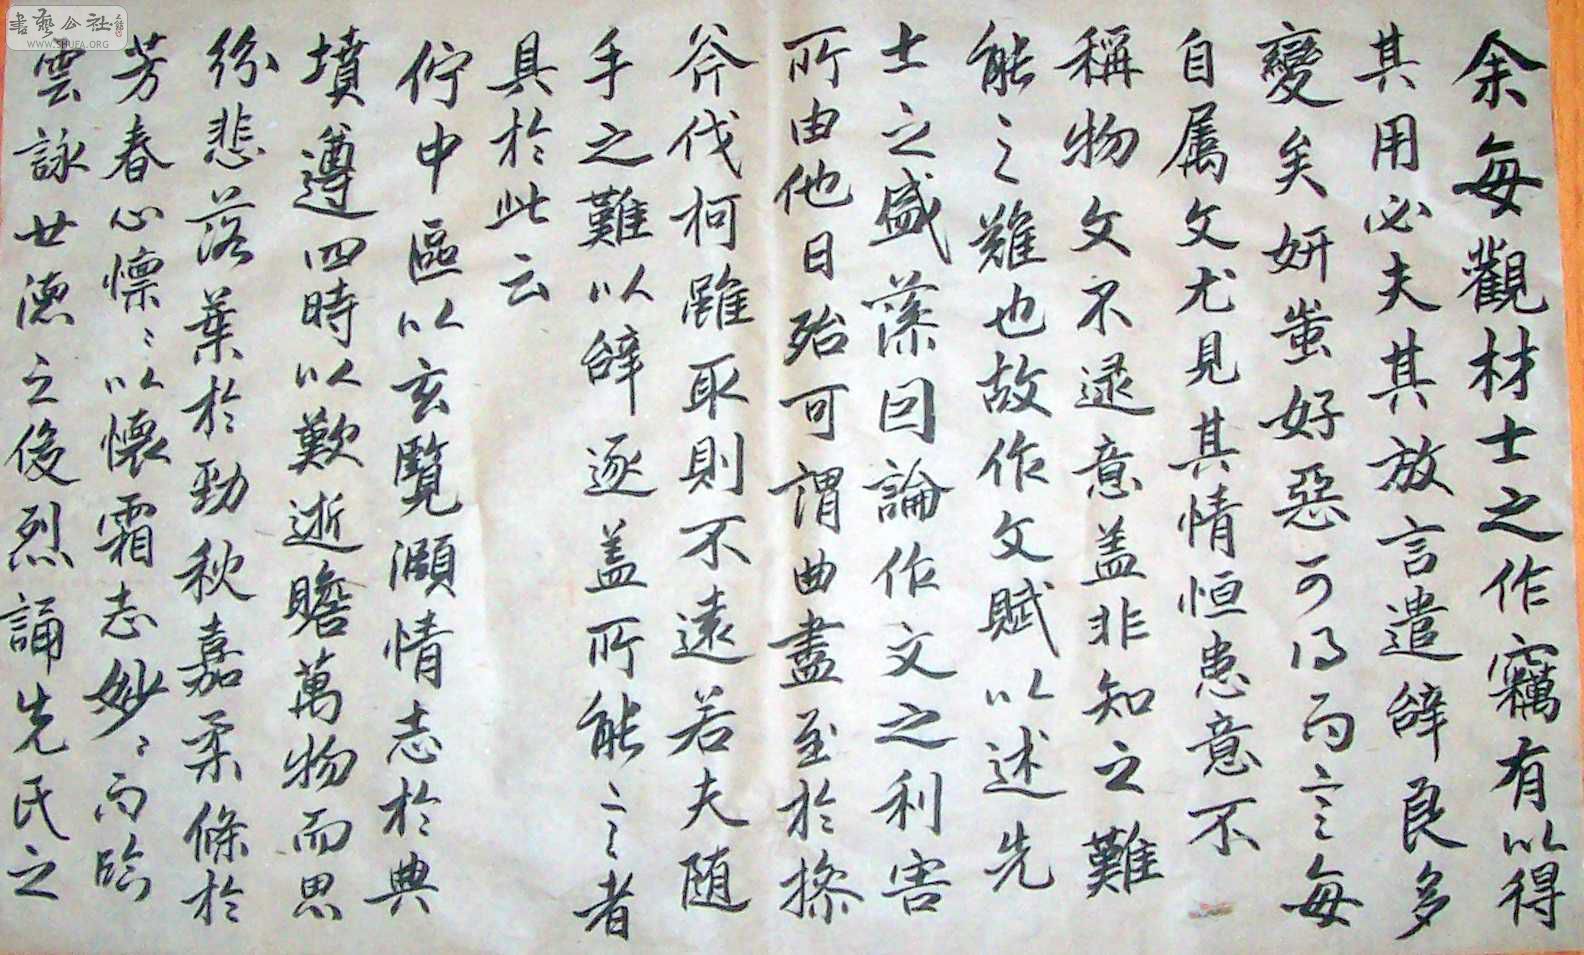 書藝公社
WWW.SHUFA.ORG
余每觀材士之作竊有以得
其用必夫其放言遣辝良多
變矣妍蚩好惡可得而言每
自属文尤見其情恒患意不
稱物文不逮意盖非知之難
能之難也故作文賦以述先
士之盛藻因論作文之利害
所由他日殆可謂曲盡至於操
斧伐柯雖取則不遠若夫随
手之難以辝逐盖所能言者
具於此云
佇中區以玄覽頤情志於典
墳遵四時以歎逝瞻萬物而思
紛悲落葉於勁秋嘉柔條於
芳春心懍〻以懷霜志妙〻而臨
雲詠世德之俊烈誦先民之